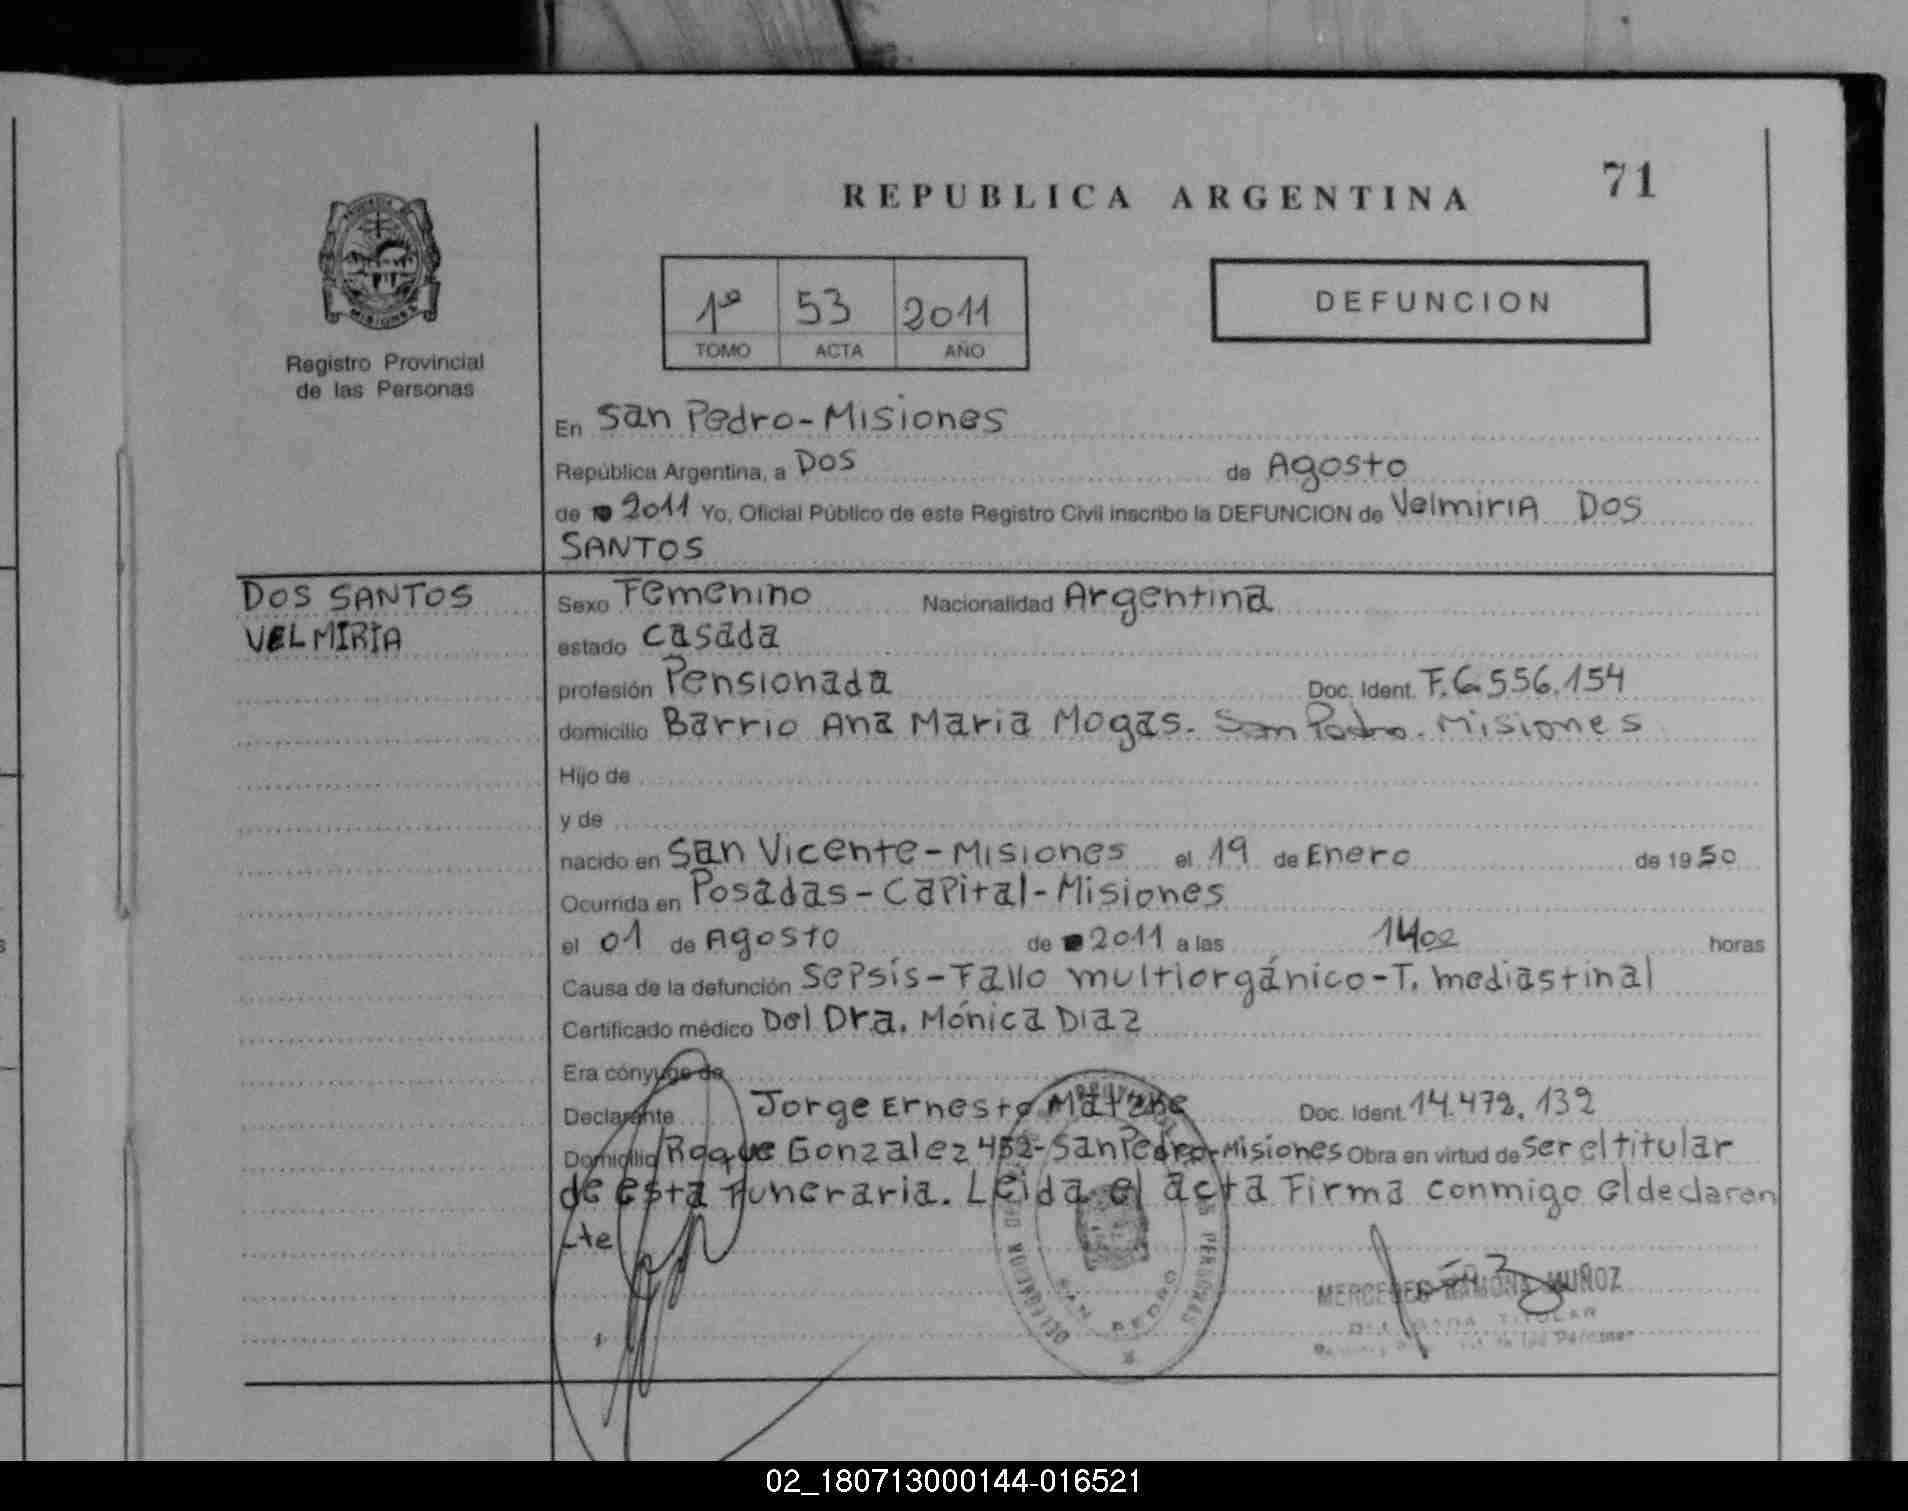 REPUBLICA ARGENTINA
71
MISIONES
Registro Provincial
de las Personas
1º 53 2011
TOMO ACTA AÑO
DEFUNCION
En San Pedro-Misiones
República Argentina, a Dos de Agosto
de 2011 Yo, Oficial Público de este Registro Civil inscribo la DEFUNCION de Velmiria Dos
SANTOS
DOS SANTOS
VELMIRIA
Sexo Femenino Nacionalidad Argentina
estado casada
profesión Pensionada Doc. Ident. F.6.556.154
domicilio Barrio Ana Maria Mogas. San Pedro. Misiones
Hijo de
y de
nacido en San Vicente-Misiones el 19 de Enero de 1950
Ocurrida en Posadas-Capital-Misiones
el 01 de Agosto de 2011 a las 1402 horas
Causa de la defunción Sepsis-Fallo multiorgánico-T. mediastinal
Certificado médico Del Dra. Mónica Diaz
Era cónyuge de
Declarante Jorge Ernesto Doc. Ident. 14.472.132
Domicilio Roque Gonzalez 452-San Pedro-Misiones Obra en virtud de ser el titular
de esta Funeraria. Leida el acta Firma conmigo el declaran
-te
SAN PEDRO
MERCEDES RAMONA MUÑOZ
TITULAR
de las Personas
02_180713000144-016521